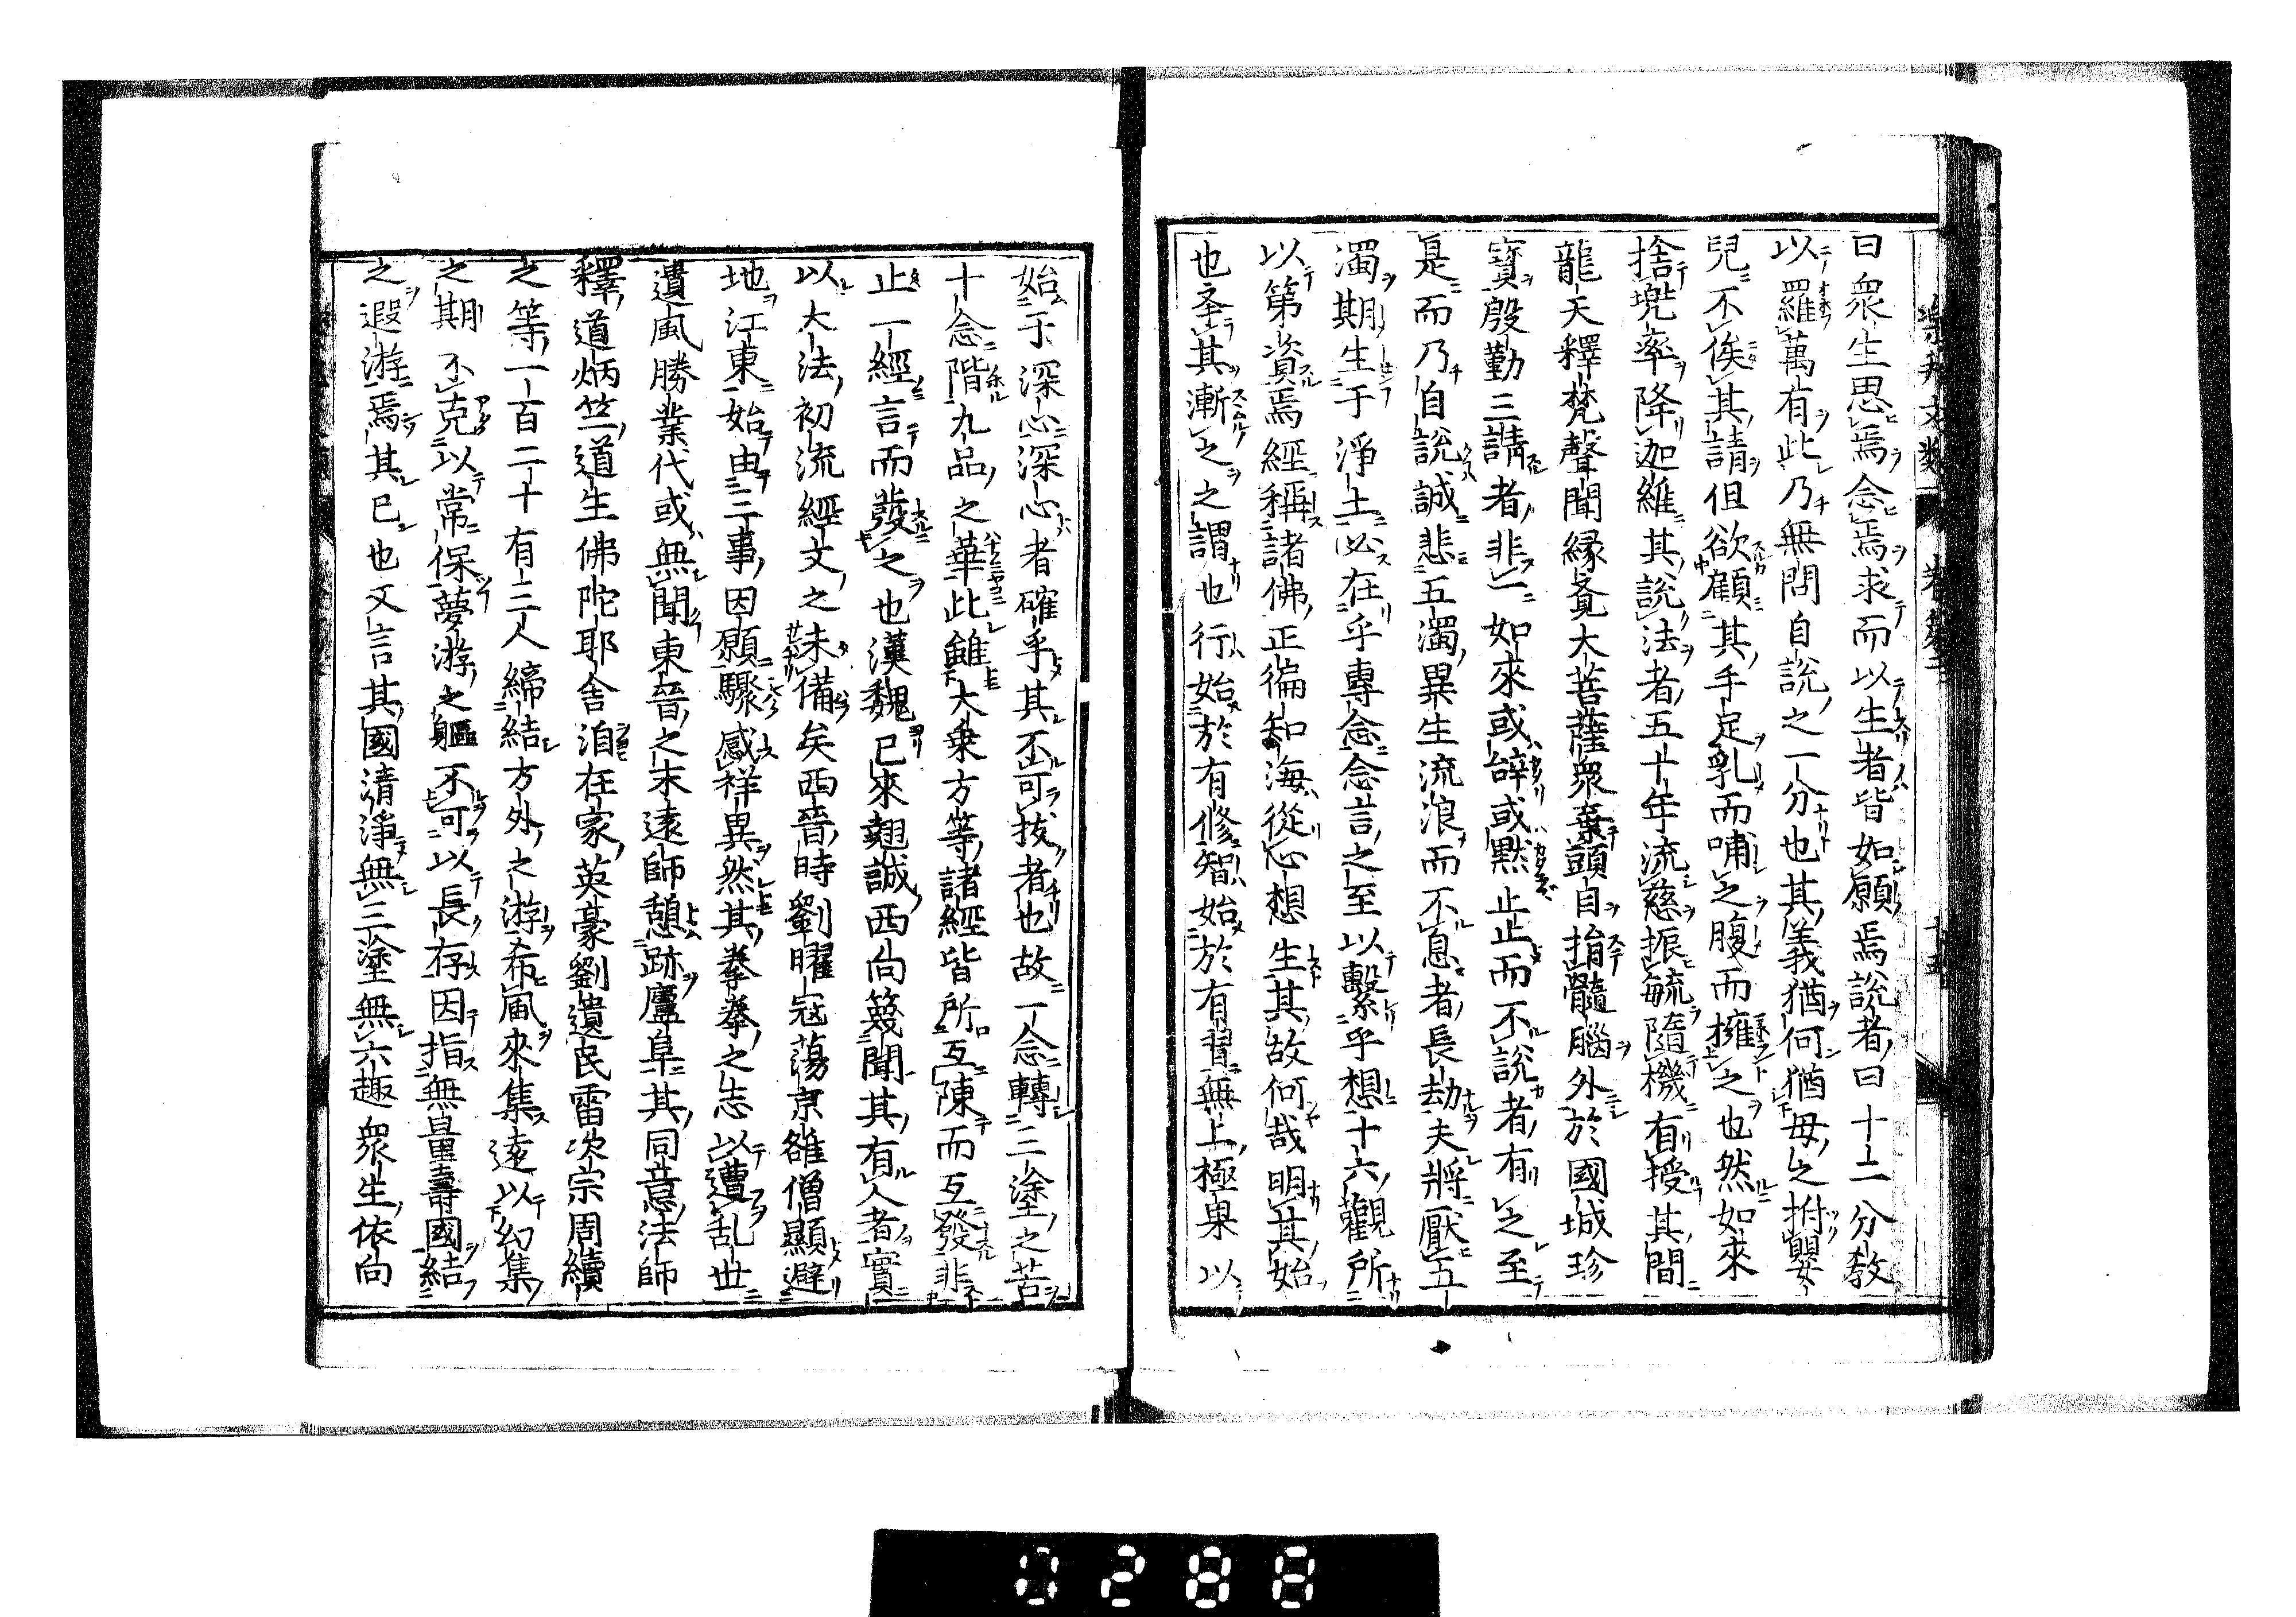 曰衆生思焉念焉求而以生者皆如願焉説者曰十二分教
以羅萬有此乃無問自説之一分也其義猶何猶母之拊嬰
兒不俟其請但欲顧其手足乳而哺之腹而擁之也然如來
捨兜率降迦維其説法者五十年流慈振毓隨機有授其間
龍天釋梵聲聞縁覔大菩薩衆棄頭自捐髓腦外於國城珍
寳殷勤三請者非一如來或辞或黙止止而不説者有之至
是而乃自説誠悲五濁異生流浪而不息者長劫夫將厭五
濁期生于淨土必在乎專念念言之至以繫乎想十六觀所
以第資焉經稱諸佛正徧知海從心想生其故何哉明其始
也圣其漸之之謂也行始於有修智始於有習無上極果以
始于深心深心者確乎其不可拔者也故一念轉三塗之苦
十念階九品之華此雖大乗方等諸經皆所互陳而互發非
止一經言而發之也漢魏已來翹誠西向篾聞其有人者實
以大法初流經文之未備矣西晉時劉曜冦蕩京雒僧顯避
地江東始由三事因願驟感祥異然其拳拳之志以遭乱世
遺風勝業代或無聞東晉之末遠師憩跡廬阜其同意法師
釋道炳竺道生佛陀耶舍洎在家英豪劉遺民雷次宗周續
之等一百二十有三人締結方外之游希風來集遠以幻集
之期不克以常保夢游之軀不可以長存因指無量壽國結
之遐游焉其已也文言其國清淨無三塗無六趣衆生依向
0288